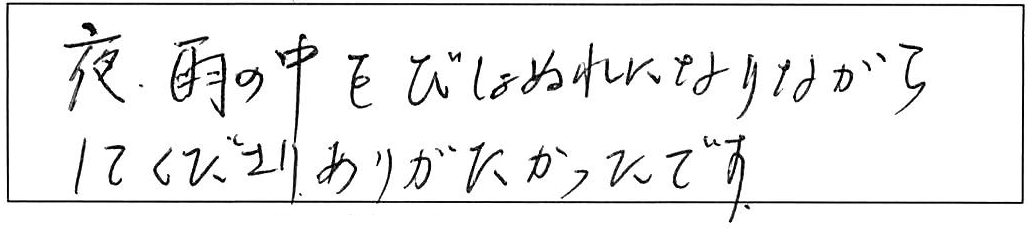 夜、雨の中をびしょぬれになりながら
してくださり、ありがたかったです。